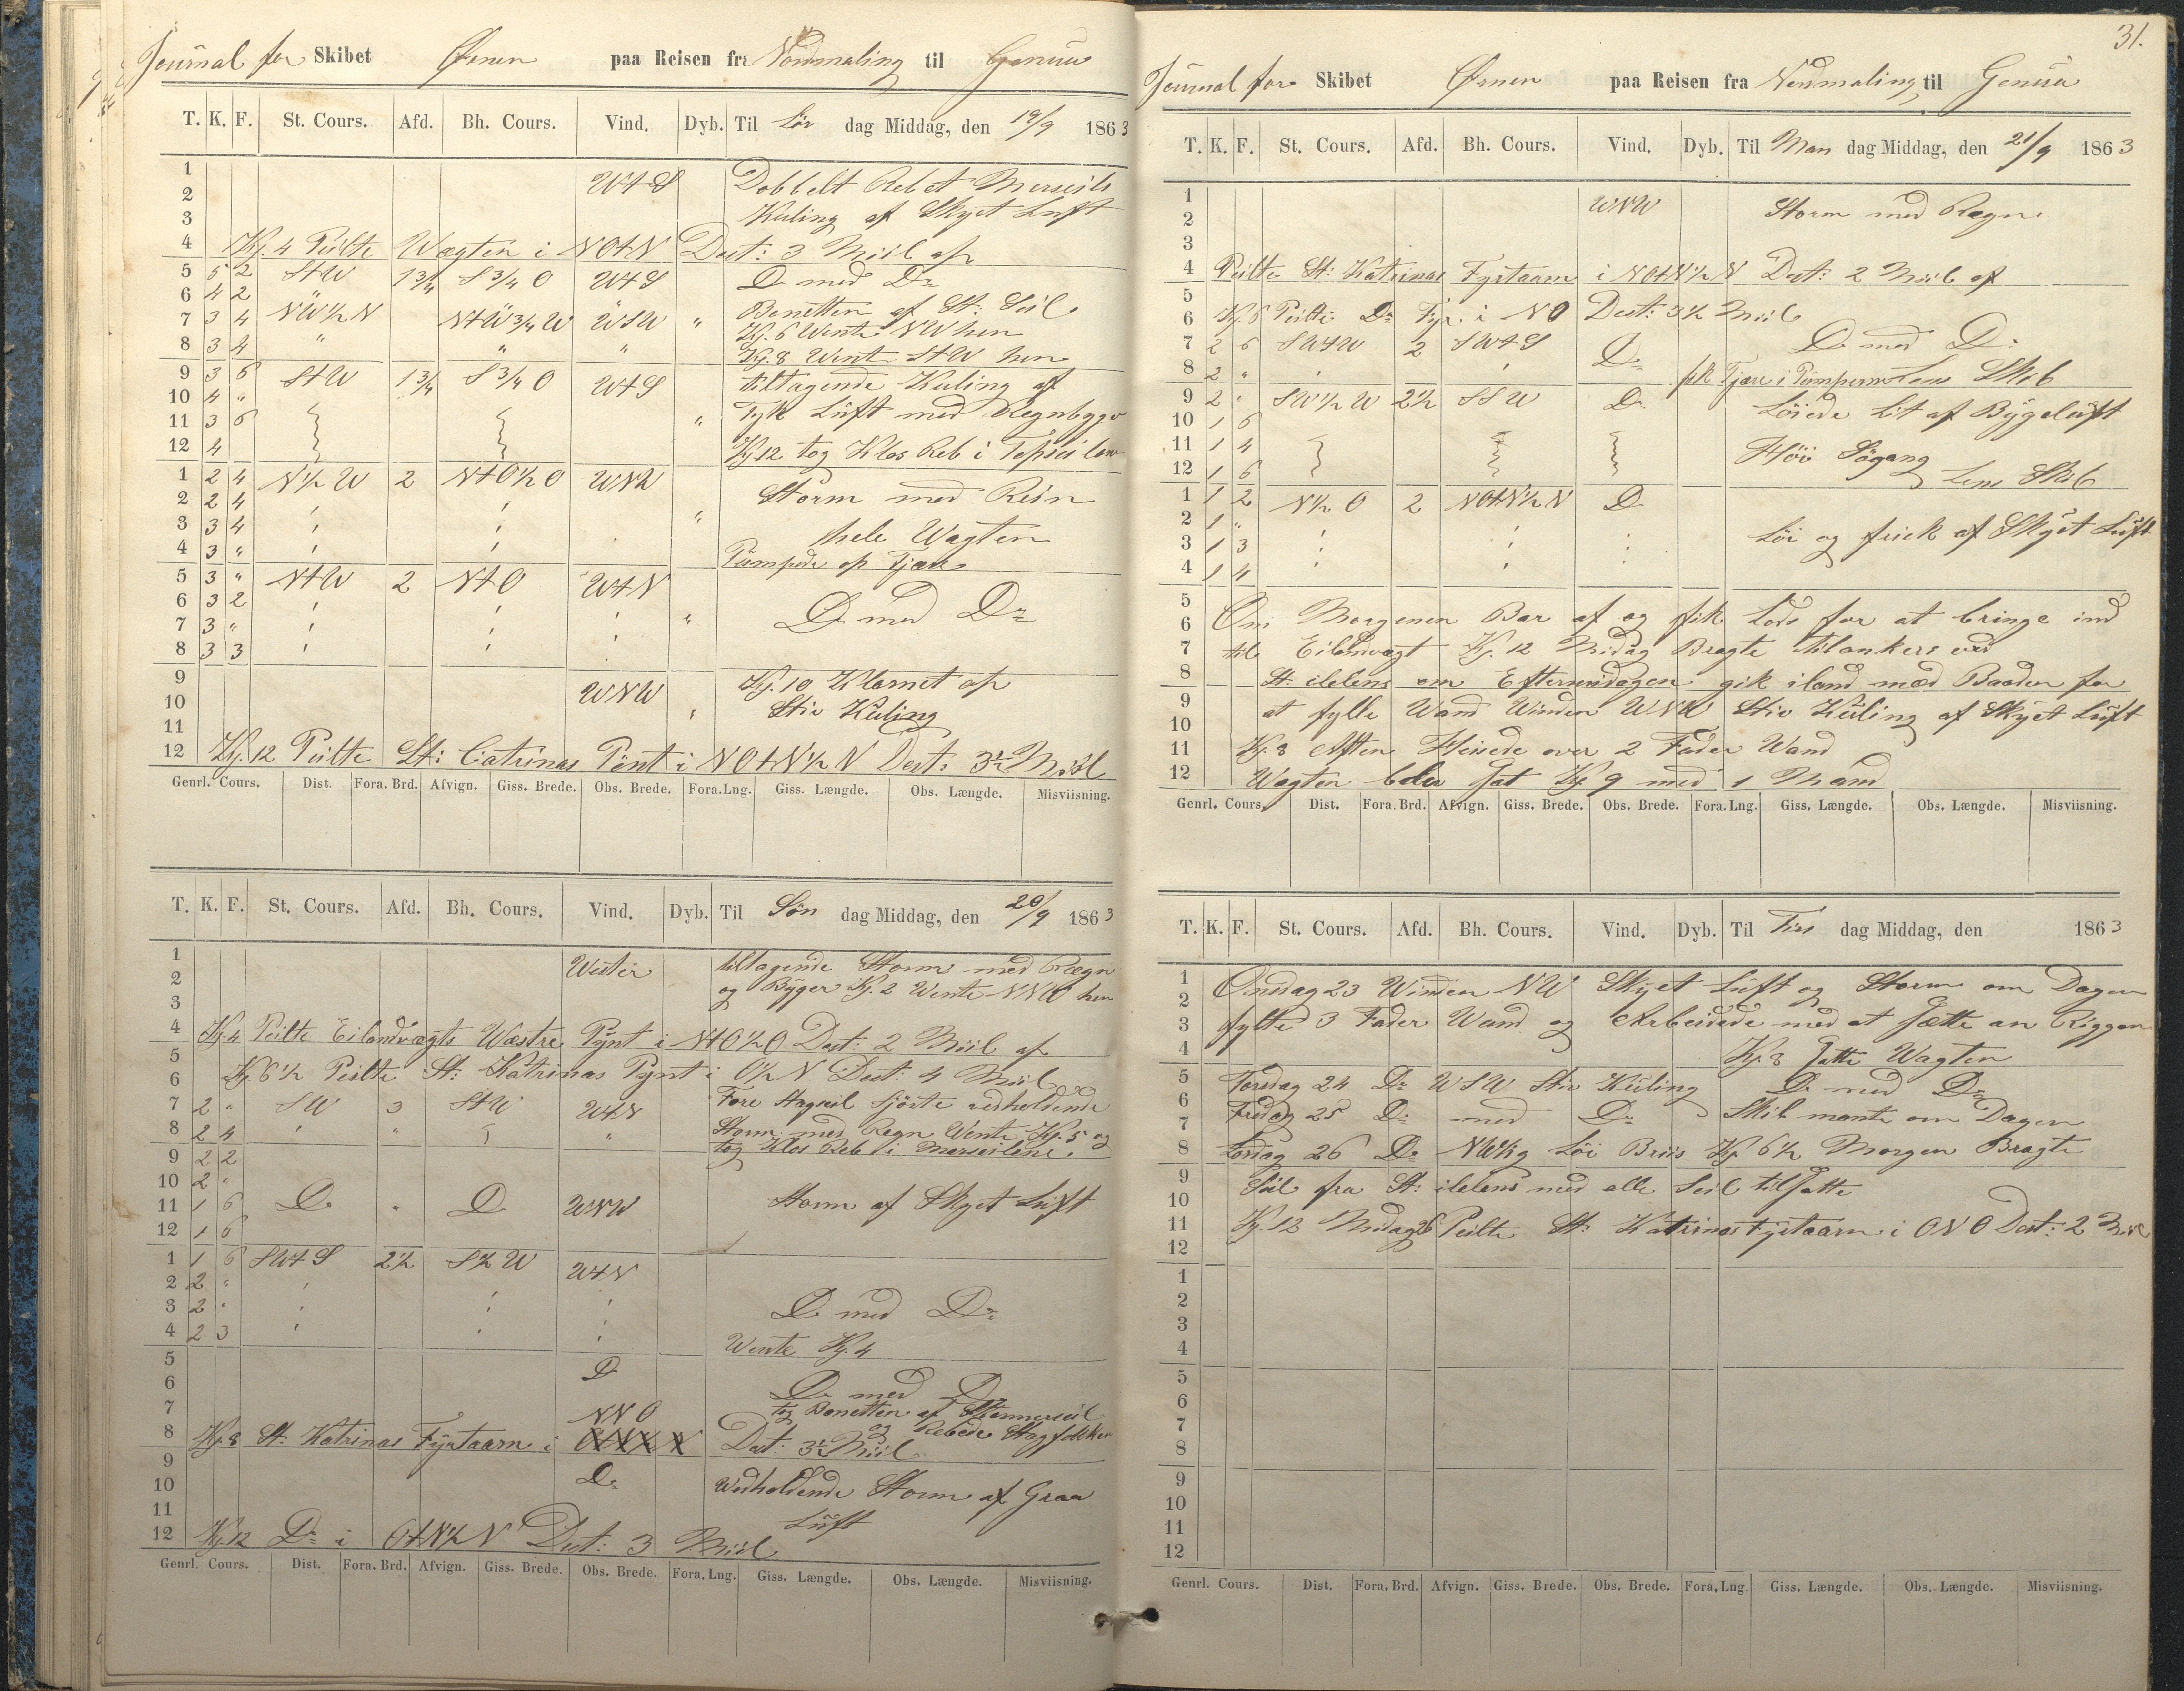 Journal for Skibet Ørnen paa Reisen fra Nordmaling til Genua
T. K. F. St. Cours. Afd. Bh. Cours. Vind. Dyb. Til Lör dag Middag, den 19/9 1863
1 WtS Dobbelt Rebet Merseils
2
3 Kuling af Skyet Luft
4 Kl. 4 Peilte Wagten i NOtN Dest: 3 Miil af
5 5 2 StW 1 3/4 S 3/4 O WtS Do med Do
6 4 2 Bonetten af St: Seil
7 3 4 NW 1/2 N NtW 3/4 W WSW " Kl. 6 Wente NW hen
8 3 4 " " " Kl. 8 Went StW hen
9 3 6 StW 1 3/4 S 3/4 O WtS tiltagende Kuling af
10 4 "
11 3 6 " Tyk Luft med Regnbyger
12 4 Kl 12 tog Klos Reb i
1 2 4 N 1/2 W 2 NtO 1/2 O WNW Storm med Rein
2 2 4
3 3 4 " hele Wagten
4 3 " Pumpede op Tjære
5 3 " NtW 2 NtO WtN
6 3 2 " Do med Do
7 3 "
8 3 3
9 Kl. 10 Klarnet op
10 WNW " Stiv Kuling
11
12 Kl. 12 Peilte St: Catrinas Pönt i NOtN 1/2 N Dest: 3 1/2 Miil
Genrl. Cours. Dist. Fora. Brd. Afvign. Giss. Brede. Obs. Brede. Fora. Lng. Giss. Længde. Obs. Længde. Misviisning.
T. K. F. St. Cours. Afd. Bh. Cours. Vind. Dyb. Til Sön dag Middag, den 20/9 1863
1 Wester tiltagende Storm med Rægn
2 og Byger Kl. 2 Wente NNW hen
3
4 Kl. 4 Peilte Eilandvægts Wæstre Pynt i NtO 1/2 O Dest: 2 Miil af
5
6 Kl. 6 1/2 Peilte St: Katrinas Pynt i O 1/2 N Dest: 4 Miil
7 2 " SW 3 StW WtN Fore Stagseil vedholdende
8 2 4 " " Storm med Regn Wente Kl. 5 og
9 2 2 tog Klos Reb i Merseilene.
10 2 "
11 1 6 Do " Do WNW Storm af Skyet Luft
12 1 6
1 1 6 SWtS 2 1/2 S 1/2 W WtN
2 2 "
3 2 " Do med Do
4 2 3 Wente Kl. 4
5 Do
6 Do med Do
7 NNO tog Bonetten af
8 Kl. 8 St: Katrinas Fyrtaarn i Dest: 3 1/2 Miil og Rebede
9
10 Do Wedholdende Storm af Graa
11 Luft
12 Kl. 12 Do i OtN 1/2 N Dest: 3 Miil
Genrl. Cours. Dist. Fora. Brd. Afvign. Giss. Brede. Obs. Brede. Fora. Lng. Giss. Længde. Obs. Længde. Misviisning.
31.
Journal for Skibet Ørnen paa Reisen fra Nordmaling til Genua
T. K. F. St. Cours. Afd. Bh. Cours. Vind. Dyb. Til Man dag Middag, den 21/9 1863
1 WNW Storm med Rægn
2
3
4 Peilte St: Katrinas Fyrtaarn i NOtN 1/2 N Dest: 2 Miil af
5
6 Kl. 6 Peilte Do Fyr i NO Dest: 3 1/2 Miil
7 2 6 SWtW 2 SWtS Do Do med Do
8 2 " fik Tjære i Pumperne Lens Skib
9 2 " SW 1/2 W 2 1/2 SSW Do Löiede Lit af Bygeluft
10 1 6
11 1 4 Höi Sögang
12 1 6 Lens Skib
1 1 2 N 1/2 O 2 NOtN 1/2 N Do
2 1 "
3 1 3 Löi og frisk af Skyet Luft
4 1 4
5 Om Morgenen Bar af og fik Lods for at bringe ind
6
7 til Eilandvægt Kl. 12 Midag Bragte tilankers ved
8 St: ilelens om Eftermidagen gik iland med Baaden for
9 at fylle Wand Winden WNW Stiv Kuling af Skyet Luft
10
11 Kl. 8 Aften Heisede over 2 Fader Wand
12 Wagten blev sat Kl. 9 med 1 Mand
Genrl. Cours. Dist. Fora. Brd. Afvign. Giss. Brede. Obs. Brede. Fora. Lng. Giss. Længde. Obs. Længde. Misviisning.
T. K. F. St. Cours. Afd. Bh. Cours. Vind. Dyb. Til Tirs dag Middag, den 1863
1 Onsdag 23 Winden NW Skyet Luft og Storm om Dagen
2
3 fylte 3 Fader Wand og Arbeidede med at sætte an Riggen
4 Kl. 8 satte Wagten
5 Torsdag 24 Do WSW Stiv Kuling Do med Do
6 Fredag 25 Do med Do Skib mante om Dagen
7
8 Lördag 26 Do Löi Briis Kl. 6 1/2 Morgen Bragte
9 Seil fra St: ilelens med alle Seil tilsatte
10
11 Kl. 12 Midag Peilte St: Katrinas Fyrtaarn i ONO Dest: 2 Miil
12
1
2
3
4
5
6
7
8
9
10
11
12
Genrl. Cours. Dist. Fora. Brd. Afvign. Giss. Brede. Obs. Brede. Fora. Lng. Giss. Længde. Obs. Længde. Misviisning.